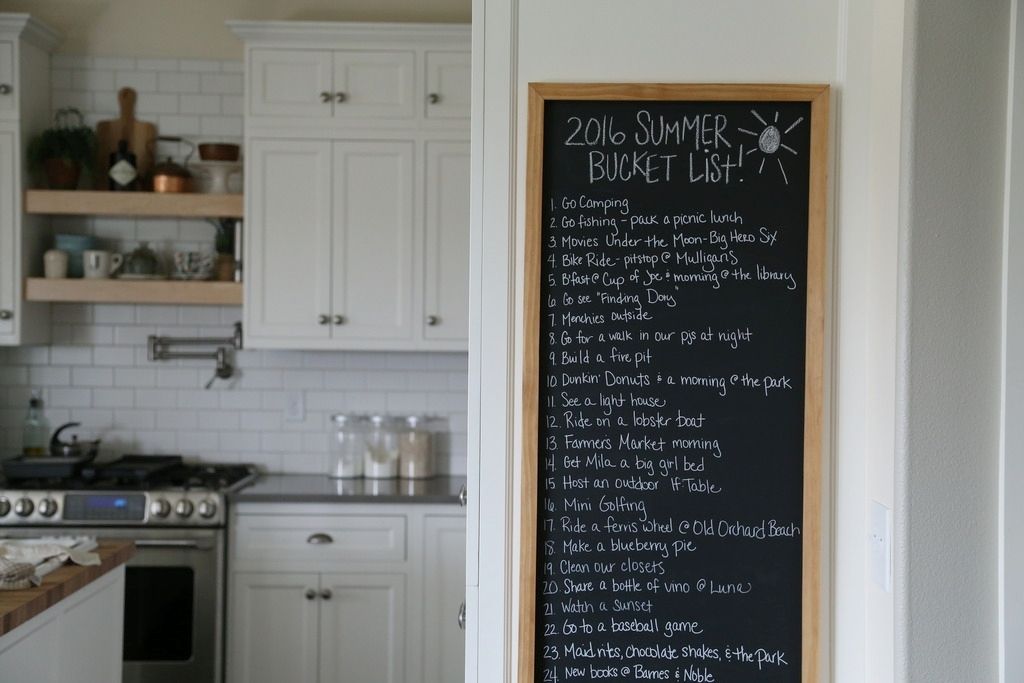 2016 SUMMER
BUCKET LIST!
1. Go Camping
2. Go fishing - pack a picnic lunch
3. Movies Under the Moon - Big Hero Six
4. Bike Ride - pitstop @ Mulligans
5. B'fast @ Cup of Joe & morning @ the library
6. Go see "Finding Dory"
7. Menchies outside
8. Go for a walk in our pjs at night
9. Build a fire pit
10. Dunkin' Donuts & a morning @ the park
11. See a light house
12. Ride on a lobster boat
13. Farmer's Market morning
14. Get Mila a big girl bed
15. Host an outdoor If:Table
16. Mini Golfing
17. Ride a ferris wheel @ Old Orchard Beach
18. Make a blueberry pie
19. Clean our closets
20. Share a bottle of vino @ Luna
21. Watch a Sunset
22. Go to a baseball game
23. Maid rites, chocolate shakes, & the park
24. New books @ Barnes & Noble